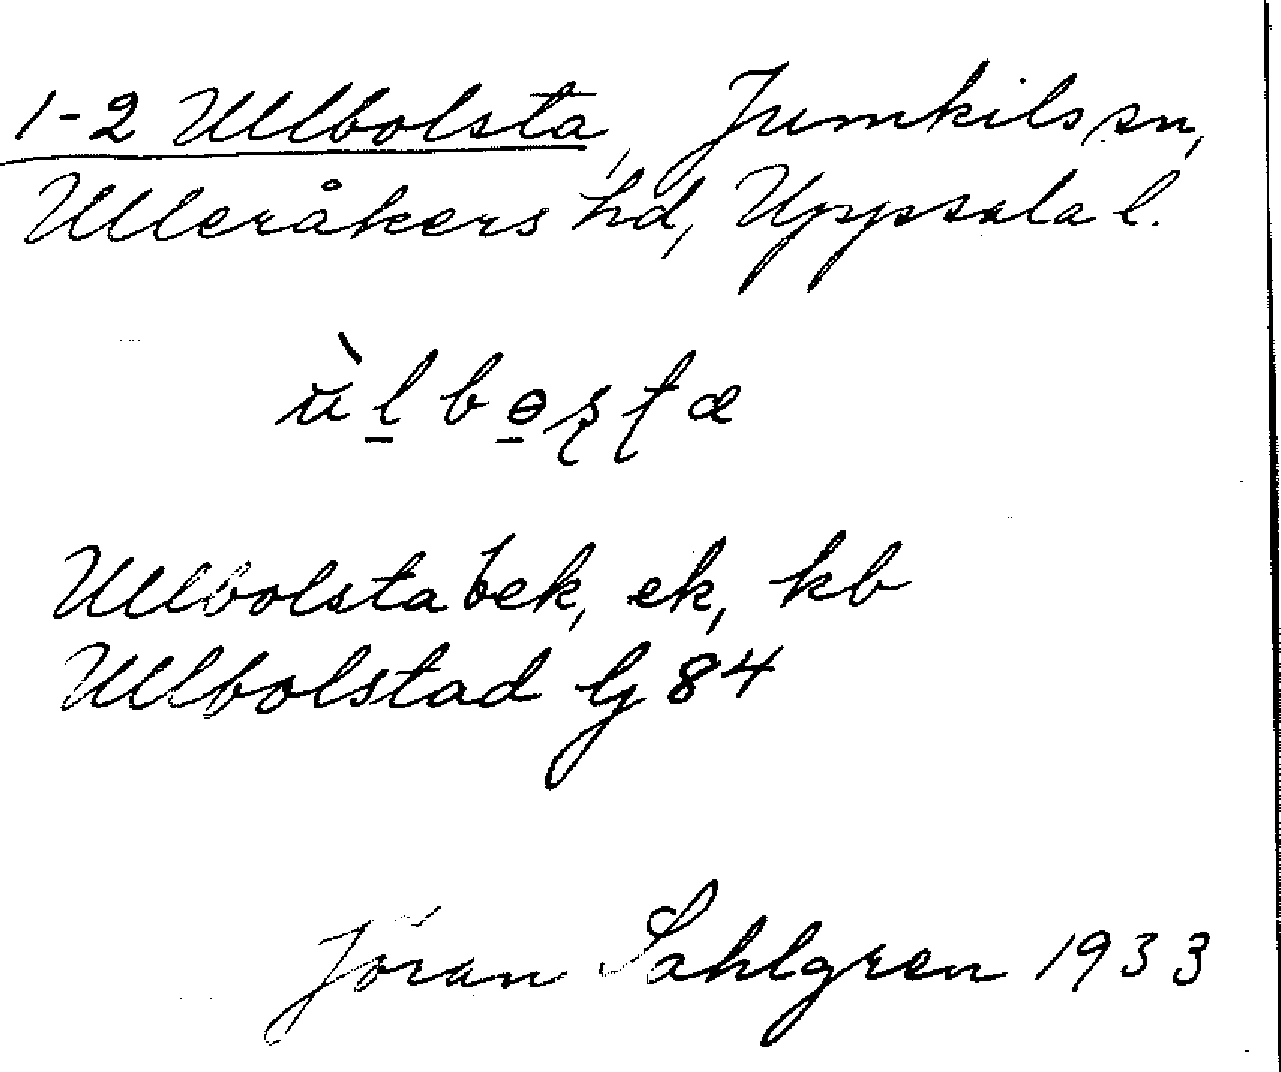 1-2 Ullbolsta, Jumkils sn,
Ulleråkers hd, Uppsala l.
ùlbɵʂʈæ
Ullbolsta bek, ek, kb
Ullbolstad Gj 84
Jöran Sahlgren 1933